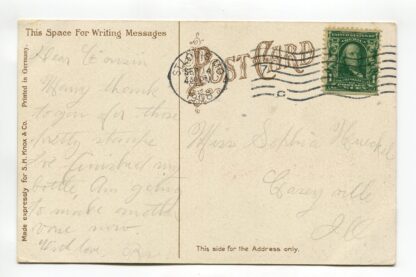 This Space For Writing Messages
POST CARD
Dear Cousin
Many thanks
to you for those
pretty stamps
I've finished my
bottle. Am going
to make anoth
one now.
With love
Miss Sophia
Caseyville
Ill
This side for the Address only.
Made expressly for S. H. Knox & Co. Printed in Germany.